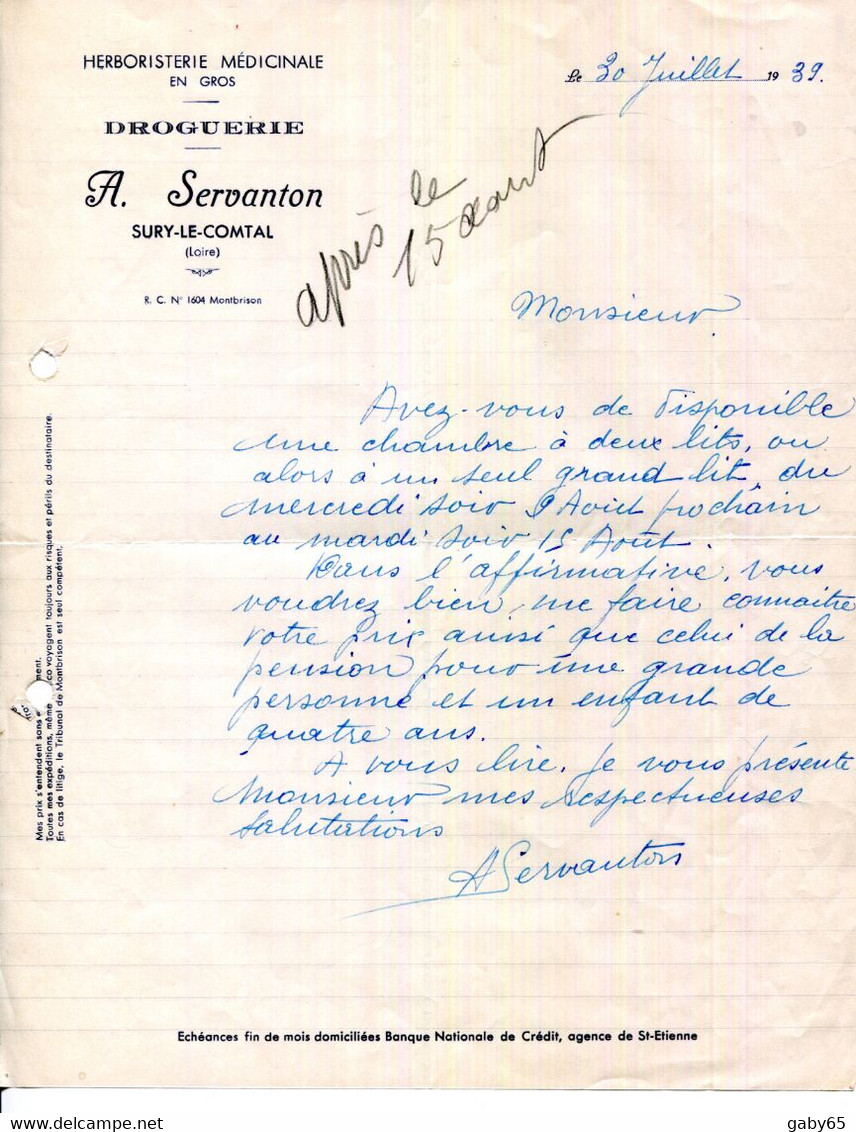 HERBORISTERIE MÉDICINALE
EN GROS
DROGUERIE
A. Servanton
SURY-LE-COMTAL
(Loire)
R. C. N° 1604 Montbrison
Le 30 Juillet 1939.
après le
15 aout
Monsieur
Avez-vous de disponible
une chambre à deux lits, ou
alors à un seul grand lit, du
mercredi soir 9 Août prochain
au mardi soir 15 Août.
Dans l'affirmative, vous
voudrez bien, me faire connaitre
votre prix ainsi que celui de la
pension pour une grande
personne et un enfant de
quatre ans.
A vous lire, je vous présente
Monsieur mes respectueuses
salutations
A Servanton
Mes prix s'entendent sans
Toutes mes expéditions, même voyagent toujours aux risques et périls du destinataire.
En cas de litige, le Tribunal de Montbrison est seul compétent.
Echéances fin de mois domiciliées Banque Nationale de Crédit, agence de St-Etienne
gaby65